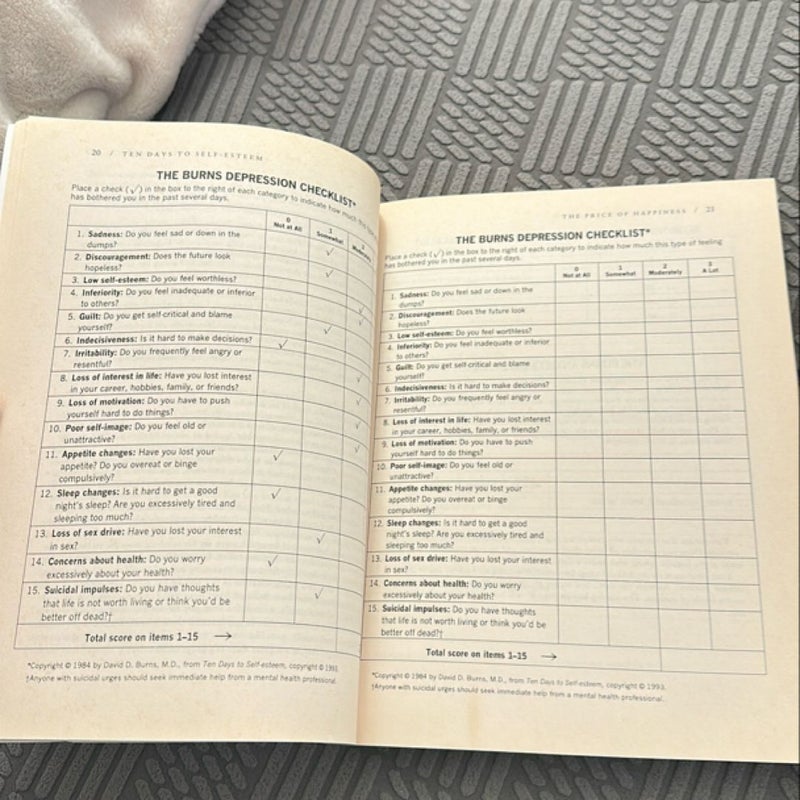 20 / TEN DAYS TO SELF-ESTEEM
THE BURNS DEPRESSION CHECKLIST*
Place a check (✓) in the box to the right of each category to indicate how much this type
has bothered you in the past several days.
0 1 2
Not at All Somewhat
1. Sadness: Do you feel sad or down in the
dumps?
✓
2. Discouragement: Does the future look
hopeless?
✓
3. Low self-esteem: Do you feel worthless?
4. Inferiority: Do you feel inadequate or inferior
to others?
✓
5. Guilt: Do you get self-critical and blame
yourself?
✓
✓
6. Indecisiveness: Is it hard to make decisions?
✓
7. Irritability: Do you frequently feel angry or
resentful?
8. Loss of interest in life: Have you lost interest
in your career, hobbies, family, or friends?
✓
9. Loss of motivation: Do you have to push
yourself hard to do things?
✓
10. Poor self-image: Do you feel old or
unattractive?
✓
11. Appetite changes: Have you lost your
appetite? Do you overeat or binge
compulsively?
✓
✓
12. Sleep changes: Is it hard to get a good
night's sleep? Are you excessively tired and
sleeping too much?
✓
13. Loss of sex drive: Have you lost your interest
in sex?
✓
14. Concerns about health: Do you worry
excessively about your health?
✓
15. Suicidal impulses: Do you have thoughts
that life is not worth living or think you'd be
better off dead?†
✓
Total score on items 1–15 →
*Copyright © 1984 by David D. Burns, M.D., from Ten Days to Self-esteem, copyright © 1993.
†Anyone with suicidal urges should seek immediate help from a mental health professional.
THE PRICE OF HAPPINESS / 21
THE BURNS DEPRESSION CHECKLIST*
Place a check (✓) in the box to the right of each category to indicate how much this type of feeling
has bothered you in the past several days.
0 1 2 3
Not at All Somewhat Moderately A Lot
1. Sadness: Do you feel sad or down in the
dumps?
2. Discouragement: Does the future look
hopeless?
3. Low self-esteem: Do you feel worthless?
4. Inferiority: Do you feel inadequate or inferior
to others?
5. Guilt: Do you get self-critical and blame
yourself?
6. Indecisiveness: Is it hard to make decisions?
7. Irritability: Do you frequently feel angry or
resentful?
8. Loss of interest in life: Have you lost interest
in your career, hobbies, family, or friends?
9. Loss of motivation: Do you have to push
yourself hard to do things?
10. Poor self-image: Do you feel old or
unattractive?
11. Appetite changes: Have you lost your
appetite? Do you overeat or binge
compulsively?
12. Sleep changes: Is it hard to get a good
night's sleep? Are you excessively tired and
sleeping too much?
13. Loss of sex drive: Have you lost your interest
in sex?
14. Concerns about health: Do you worry
excessively about your health?
15. Suicidal impulses: Do you have thoughts
that life is not worth living or think you'd be
better off dead?†
Total score on items 1–15 →
*Copyright © 1984 by David D. Burns, M.D., from Ten Days to Self-esteem, copyright © 1993.
†Anyone with suicidal urges should seek immediate help from a mental health professional.